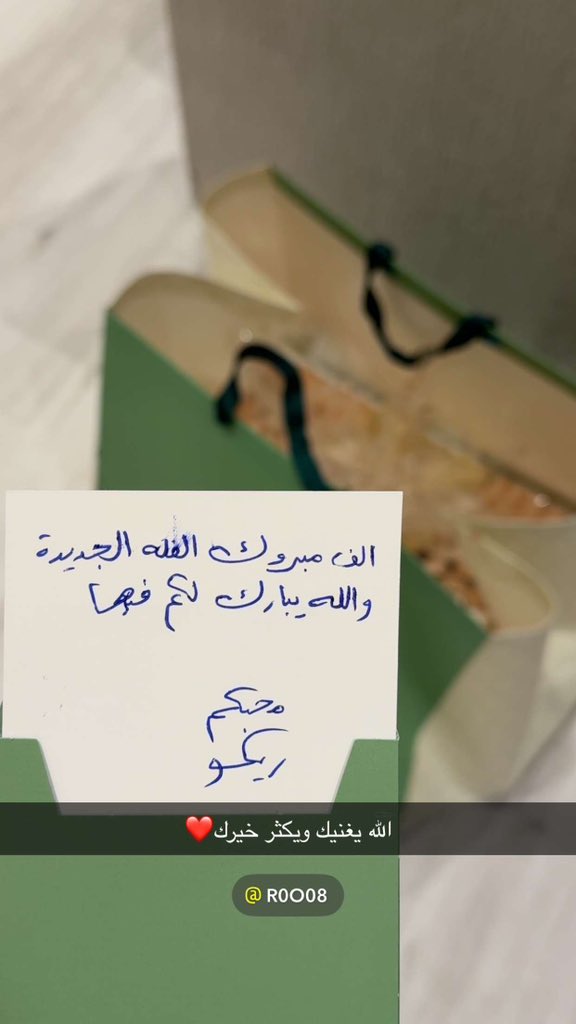 الف مبروك الفله الجديدة
والله يبارك لكم فيها
محبكم
ريكو
الله يغنيك ويكثر خيرك❤️
@ R0O08